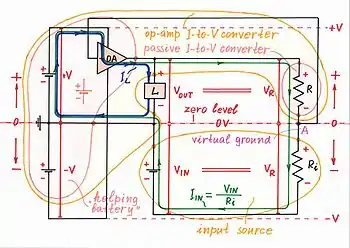 op-amp I-to-V converter
passive I-to-V converter
OA
+V
I_L
L
V_OUT
V_R
R
zero level
0
0V
0
virtual ground
A
-V
V_IN
V_R
R_i
I_IN = V_IN / R_i
"helping
battery"
input source
+V
-V